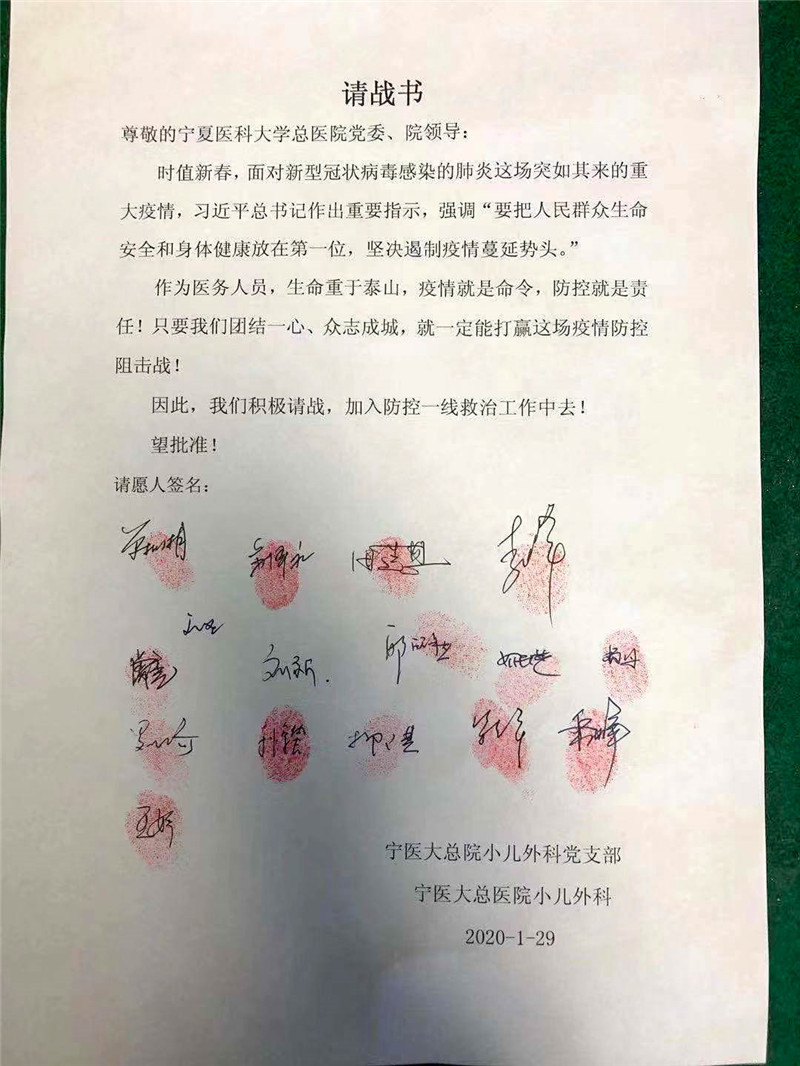 请战书
尊敬的宁夏医科大学总医院党委、院领导：
时值新春，面对新型冠状病毒感染的肺炎这场突如其来的重
大疫情，习近平总书记作出重要指示，强调“要把人民群众生命
安全和身体健康放在第一位，坚决遏制疫情蔓延势头。”
作为医务人员，生命重于泰山，疫情就是命令，防控就是责
任！只要我们团结一心、众志成城，就一定能打赢这场疫情防控
阻击战！
因此，我们积极请战，加入防控一线救治工作中去！
望批准！
请愿人签名：
李峰
王婷
宁医大总院小儿外科党支部
宁医大总医院小儿外科
2020-1-29